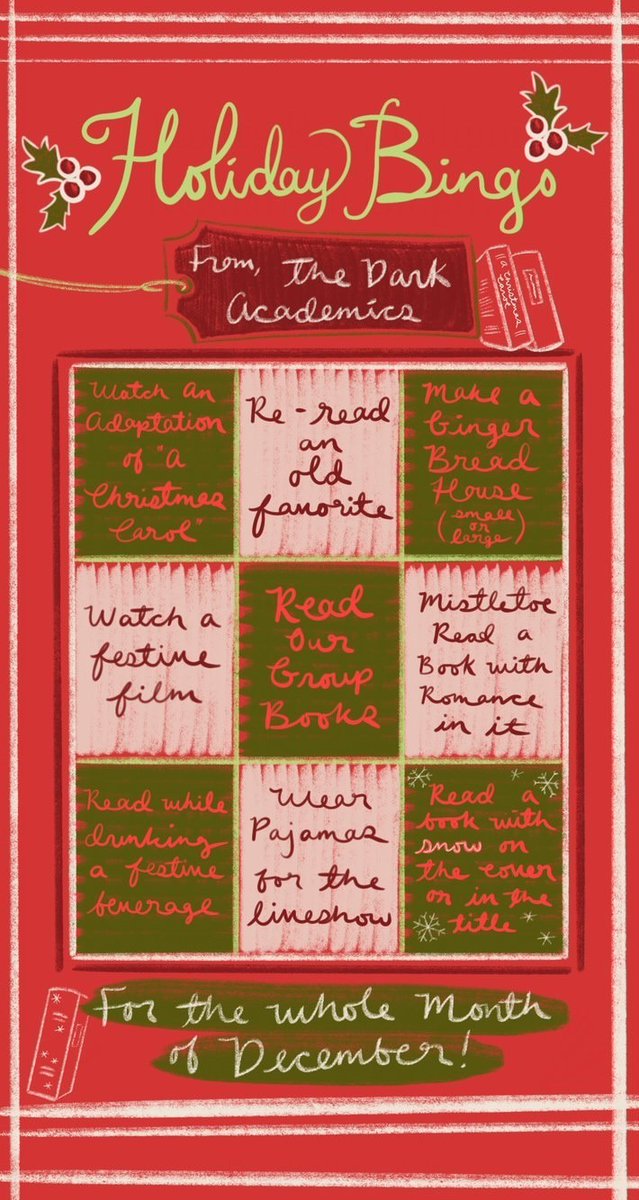 Holiday Bingo
From, The Dark
Academics
a christmas
carol
Watch An
Adaptation
of "A
Christmas
Carol"
Re-read
an
old
favorite
Make a
Ginger
Bread
House
(small
or
large)
Watch a
festive
film
Read
Our
Group
Books
Mistletoe
Read a
Book with
Romance
in it
Read while
drinking
a festive
beverage
Wear
Pajamas
for the
liveshow
Read a
book with
snow on
the cover
or in the
title
For the whole Month
of December!